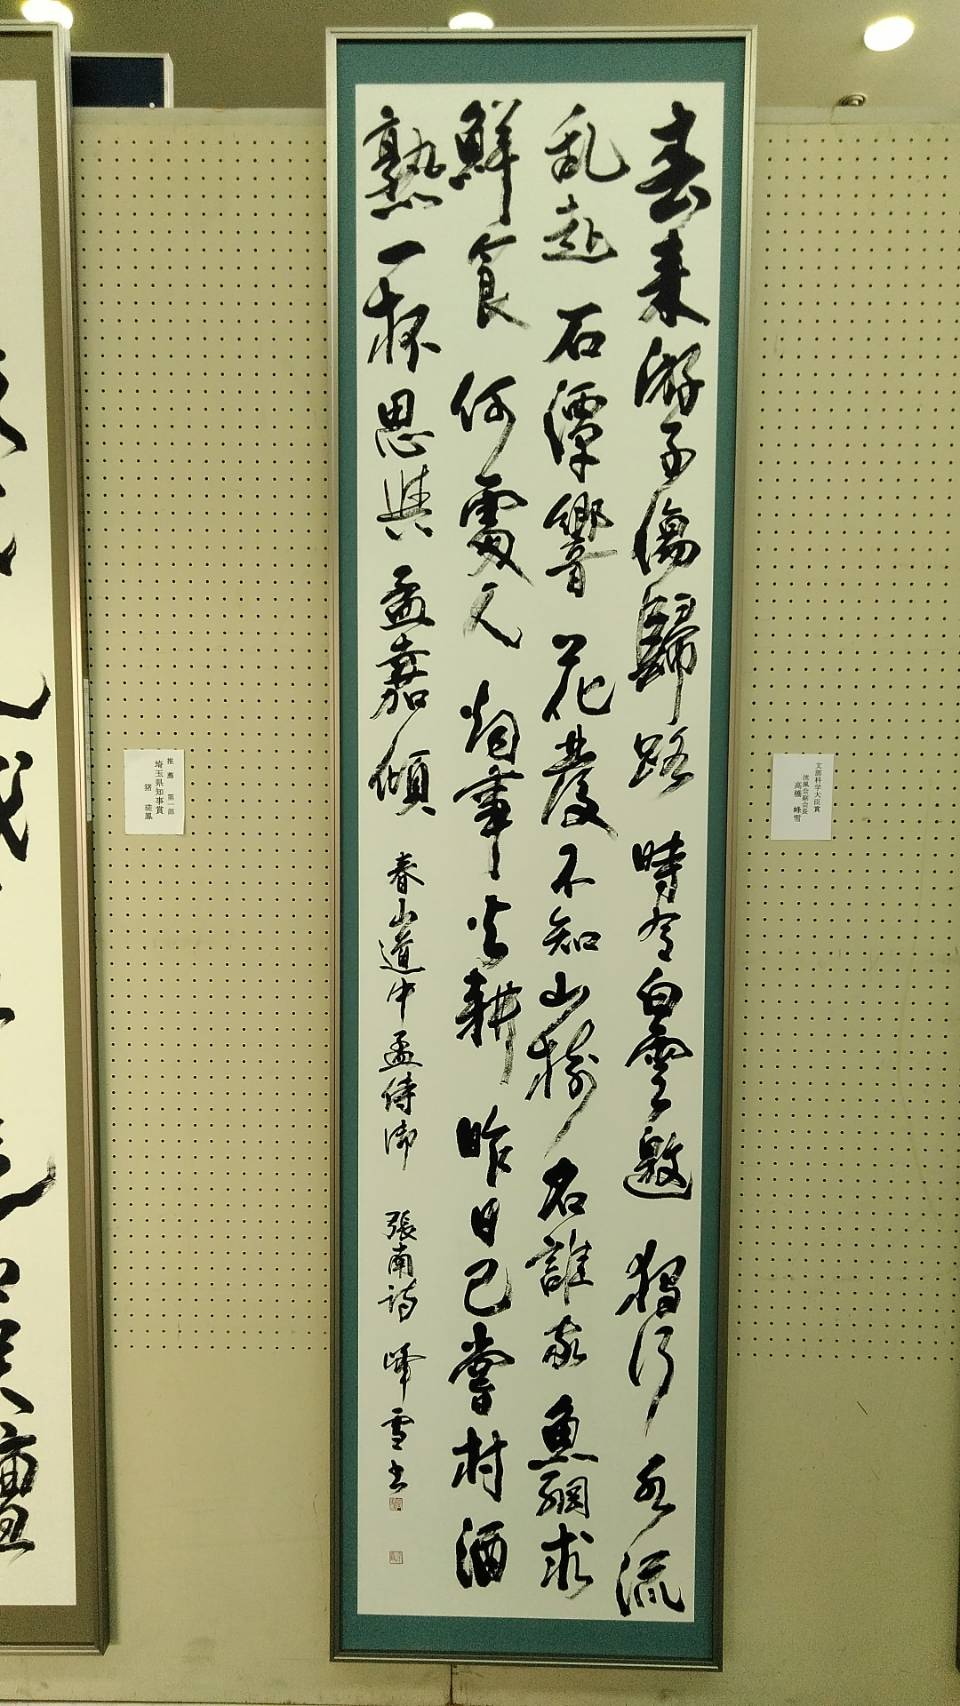 春来游子傷歸路時有白雲邀獨行水流
乱赴石潭響花發不知山樹名誰家魚網求
鮮食何處人烟事火耕昨日已嘗村酒
熟一杯思與孟嘉傾 春山道中孟侍御 張南詩 峰雪書
文部科学大臣賞
高橋 峰雪
推薦 第一部
埼玉県知事賞